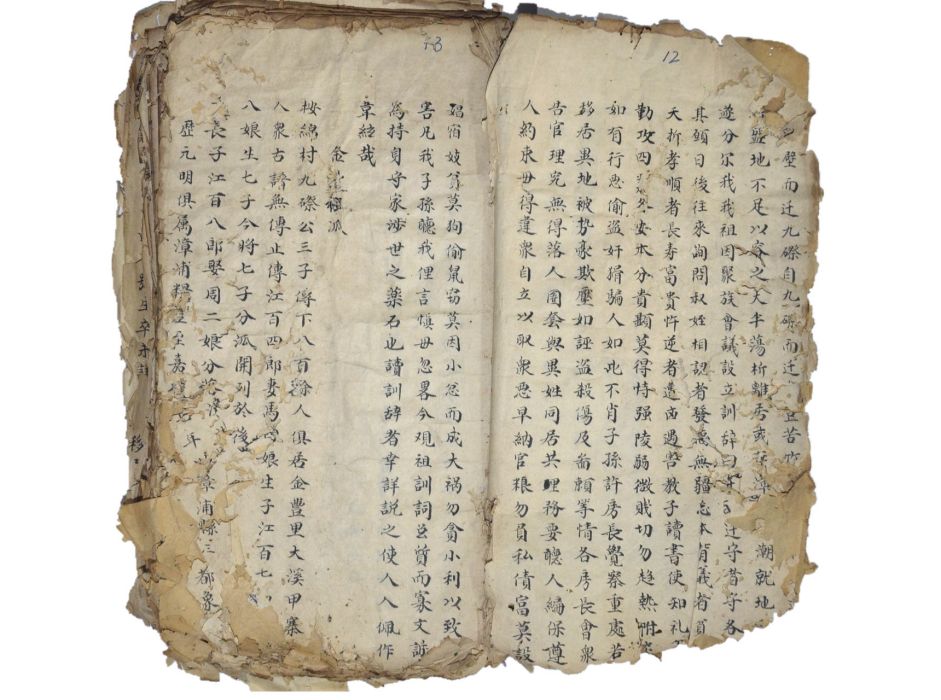 12
壁而迁九磜自九磜而迁苦竹
盤地不足以容之大半蕩析離秀或潮就地
遂分尔我我祖因聚族會議設立訓辞曰迁守昔守各
其頭日後往來詢問叔姪相認者發悬無疆忘本背義者
夭折孝順者長寿富貴忤逆者遭凶遇害教子讀書使知礼
勤攻四安本分貴顯莫得恃强陵弱微贱切勿趋熱附
如有行恶偷盗奸猾騙人如此不肖子孫許房長覺察重處若
移居異地被势豪欺壓如誣盗殺傷及畨賴等情各房長會衆
告官理究無得落人圈套與異姓同居共理務要聽人編保遵
人約束毋得違衆自立以取衆恶早納官粮勿負私債富莫設
13
娼宿妓貧莫狗偷鼠窃莫因小忿而成大禍勿貪小利以致
害凡我子孫聽我俚言愼毋忽畧今观祖訓詞旨質而寡文訴
為持身守家涉世之藥石也讀訓辞者幸詳説之使人人佩作
韋絃哉
金豐種派
桉綿村九磜公三子傳下八百餘人俱居金豐里大溪甲寨
人衆古譜無傳止傳江百四郎妻馬娘生子江百七
八娘生七子今將七子分派開列於後
長子江百八郎娶周二娘分居
歷元明俱属漳浦至嘉年漳浦縣三都象